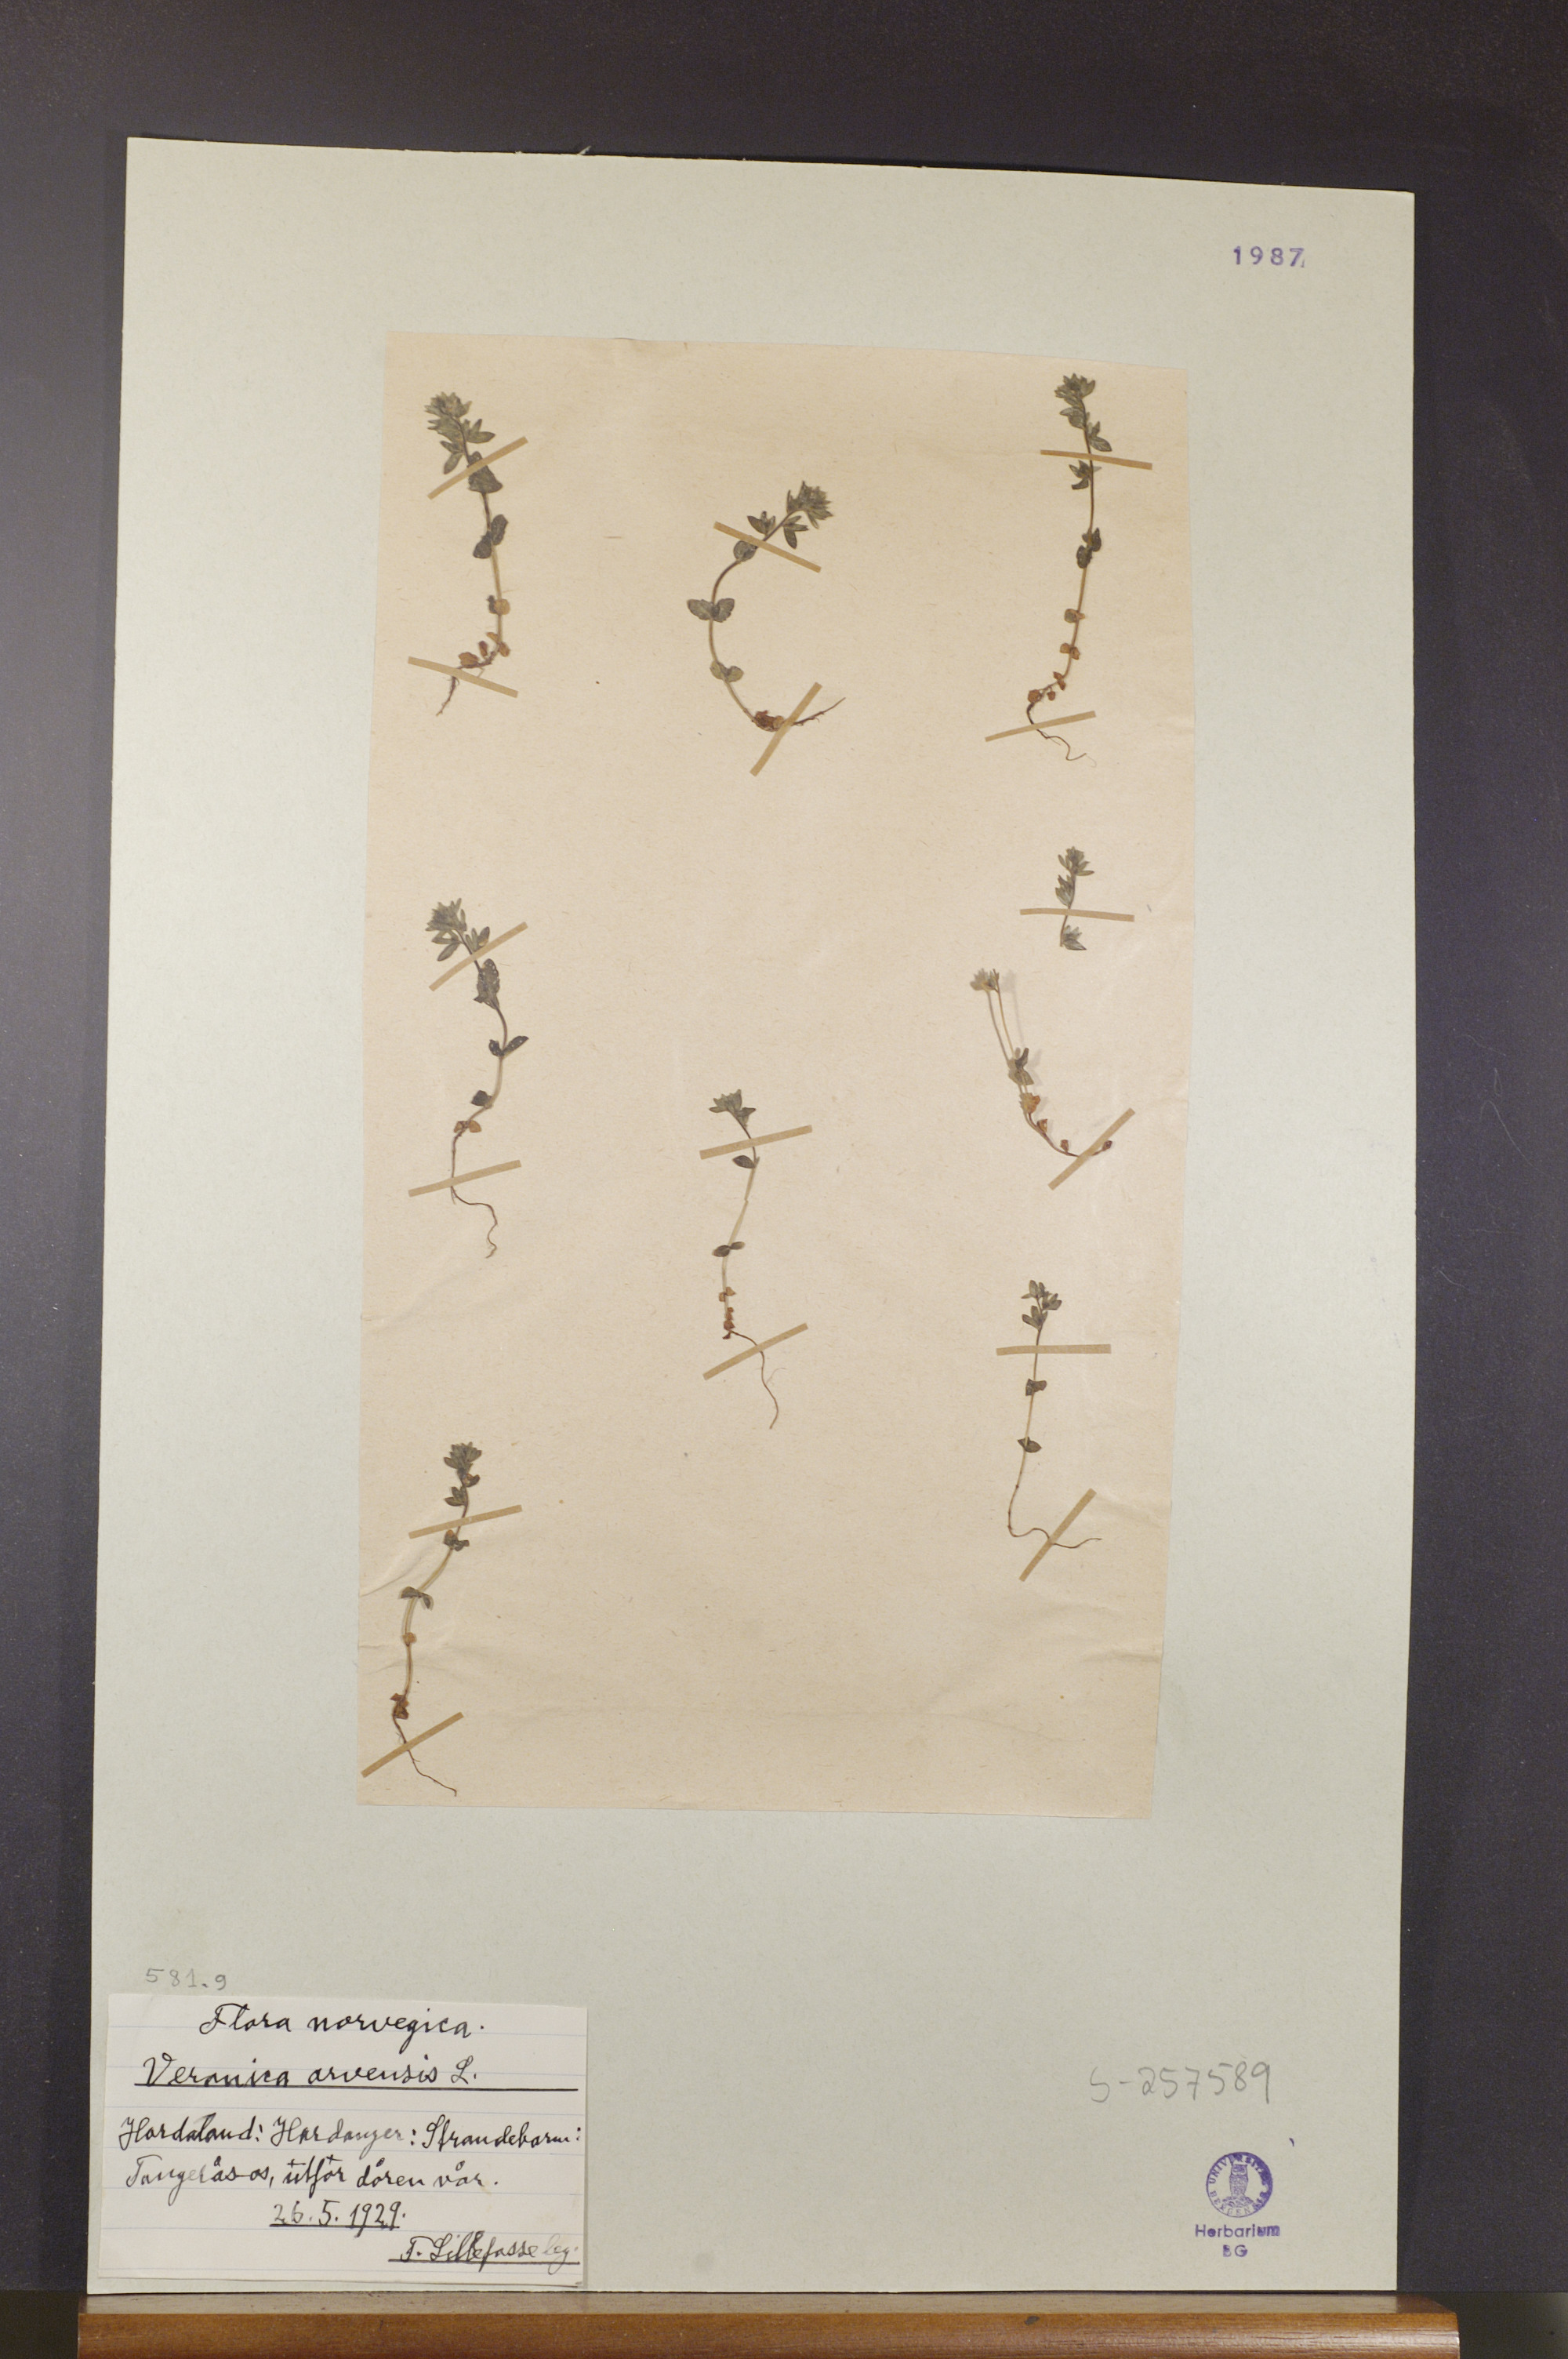 1987
581.9
Flora norvegica.
Veronica arvensis L.
Hordaland: Hardanger: Strandebarm:
Tangerås-os, utför dören vår.
26.5.1929.
T. Lillefosse leg.
S-257589
UNIVERSITAS BERGENSIS
Herbarium
BG